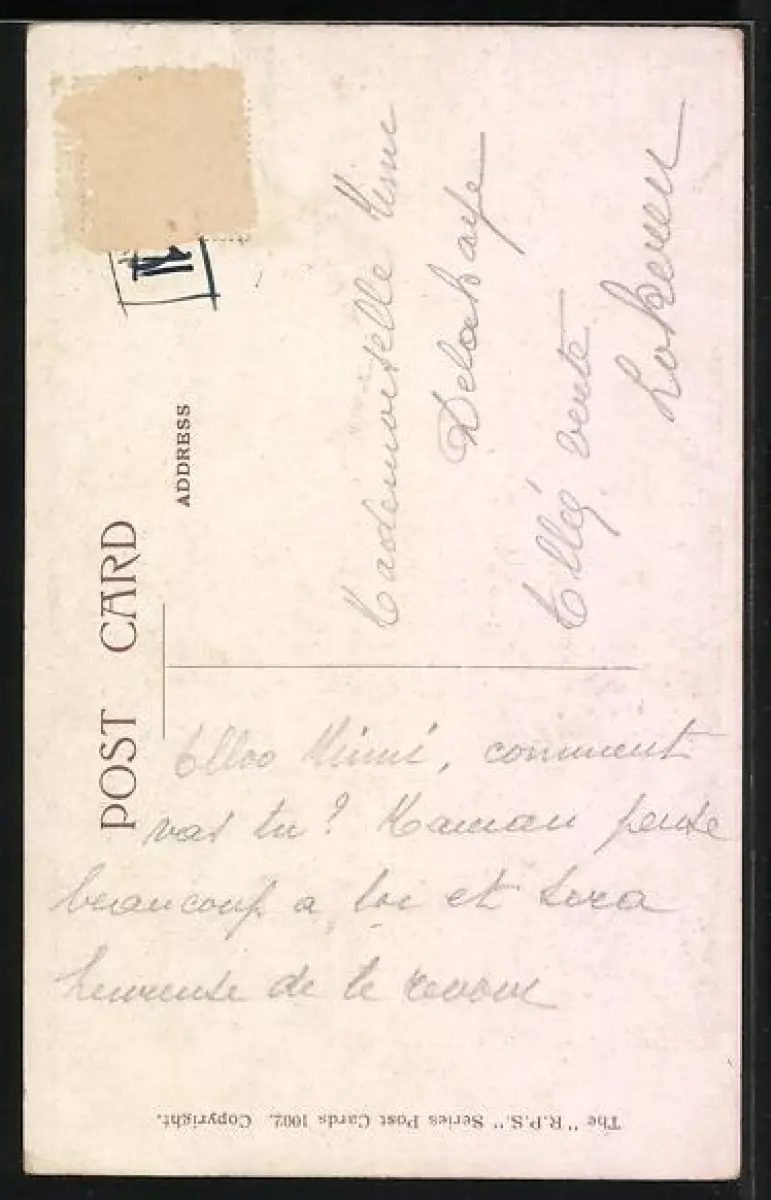 POST CARD
ADDRESS
Mademoiselle Mimi
Delahaye
Allée verte
Lokeren
Alloo Mimi, comment
vas tu? Maman pense
beaucoup a toi et sera
heureuse de te revoir
The "R.P.S." Series Post Cards 1002. Copyright.